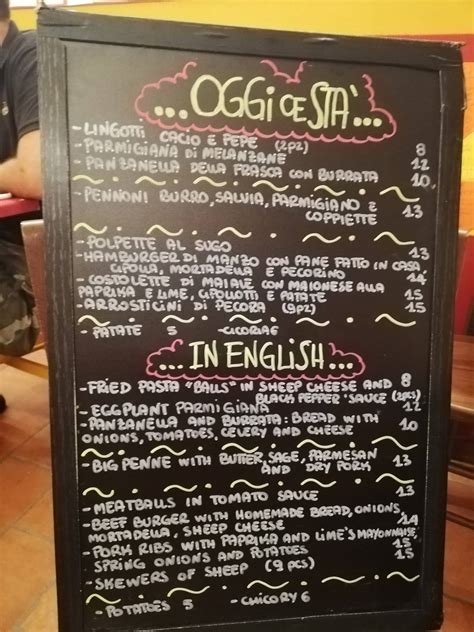 ...OGGI CE STA'...
- LINGOTTI CACIO E PEPE (2PZ) 8
- PARMIGIANA DI MELANZANE 12
- PANZANELLA DELLA FRASCA CON BURRATA 10
- PENNONI BURRO, SALVIA, PARMIGIANO E
COPPIETTE 13
- POLPETTE AL SUGO 13
- HAMBURGER DI MANZO CON PANE FATTO IN CASA
CIPOLLA, MORTADELLA E PECORINO 14
- COSTOLETTE DI MAIALE CON MAIONESE ALLA
PAPRIKA E LIME, CIPOLLOTTI E PATATE 15
- ARROSTICINI DI PECORA (9PZ) 15
- PATATE 5 - CICORIA 6
...IN ENGLISH...
- FRIED PASTA "BALLS" IN SHEEP CHEESE AND 8
BLACK PEPPER SAUCE (2PCS)
- EGGPLANT PARMIGIANA 12
- PANZANELLA AND BURRATA: BREAD WITH
ONIONS, TOMATOES, CELERY AND CHEESE 10
- BIG PENNE WITH BUTTER, SAGE, PARMESAN
AND DRY PORK 13
- MEATBALLS IN TOMATO SAUCE 13
- BEEF BURGER WITH HOMEMADE BREAD, ONIONS,
MORTADELLA, SHEEP CHEESE 14
- PORK RIBS WITH PAPRIKA AND LIME'S MAYONNAISE,
SPRING ONIONS AND POTATOES 15
- SKEWERS OF SHEEP (9 PCS) 15
- POTATOES 5 - CHICORY 6